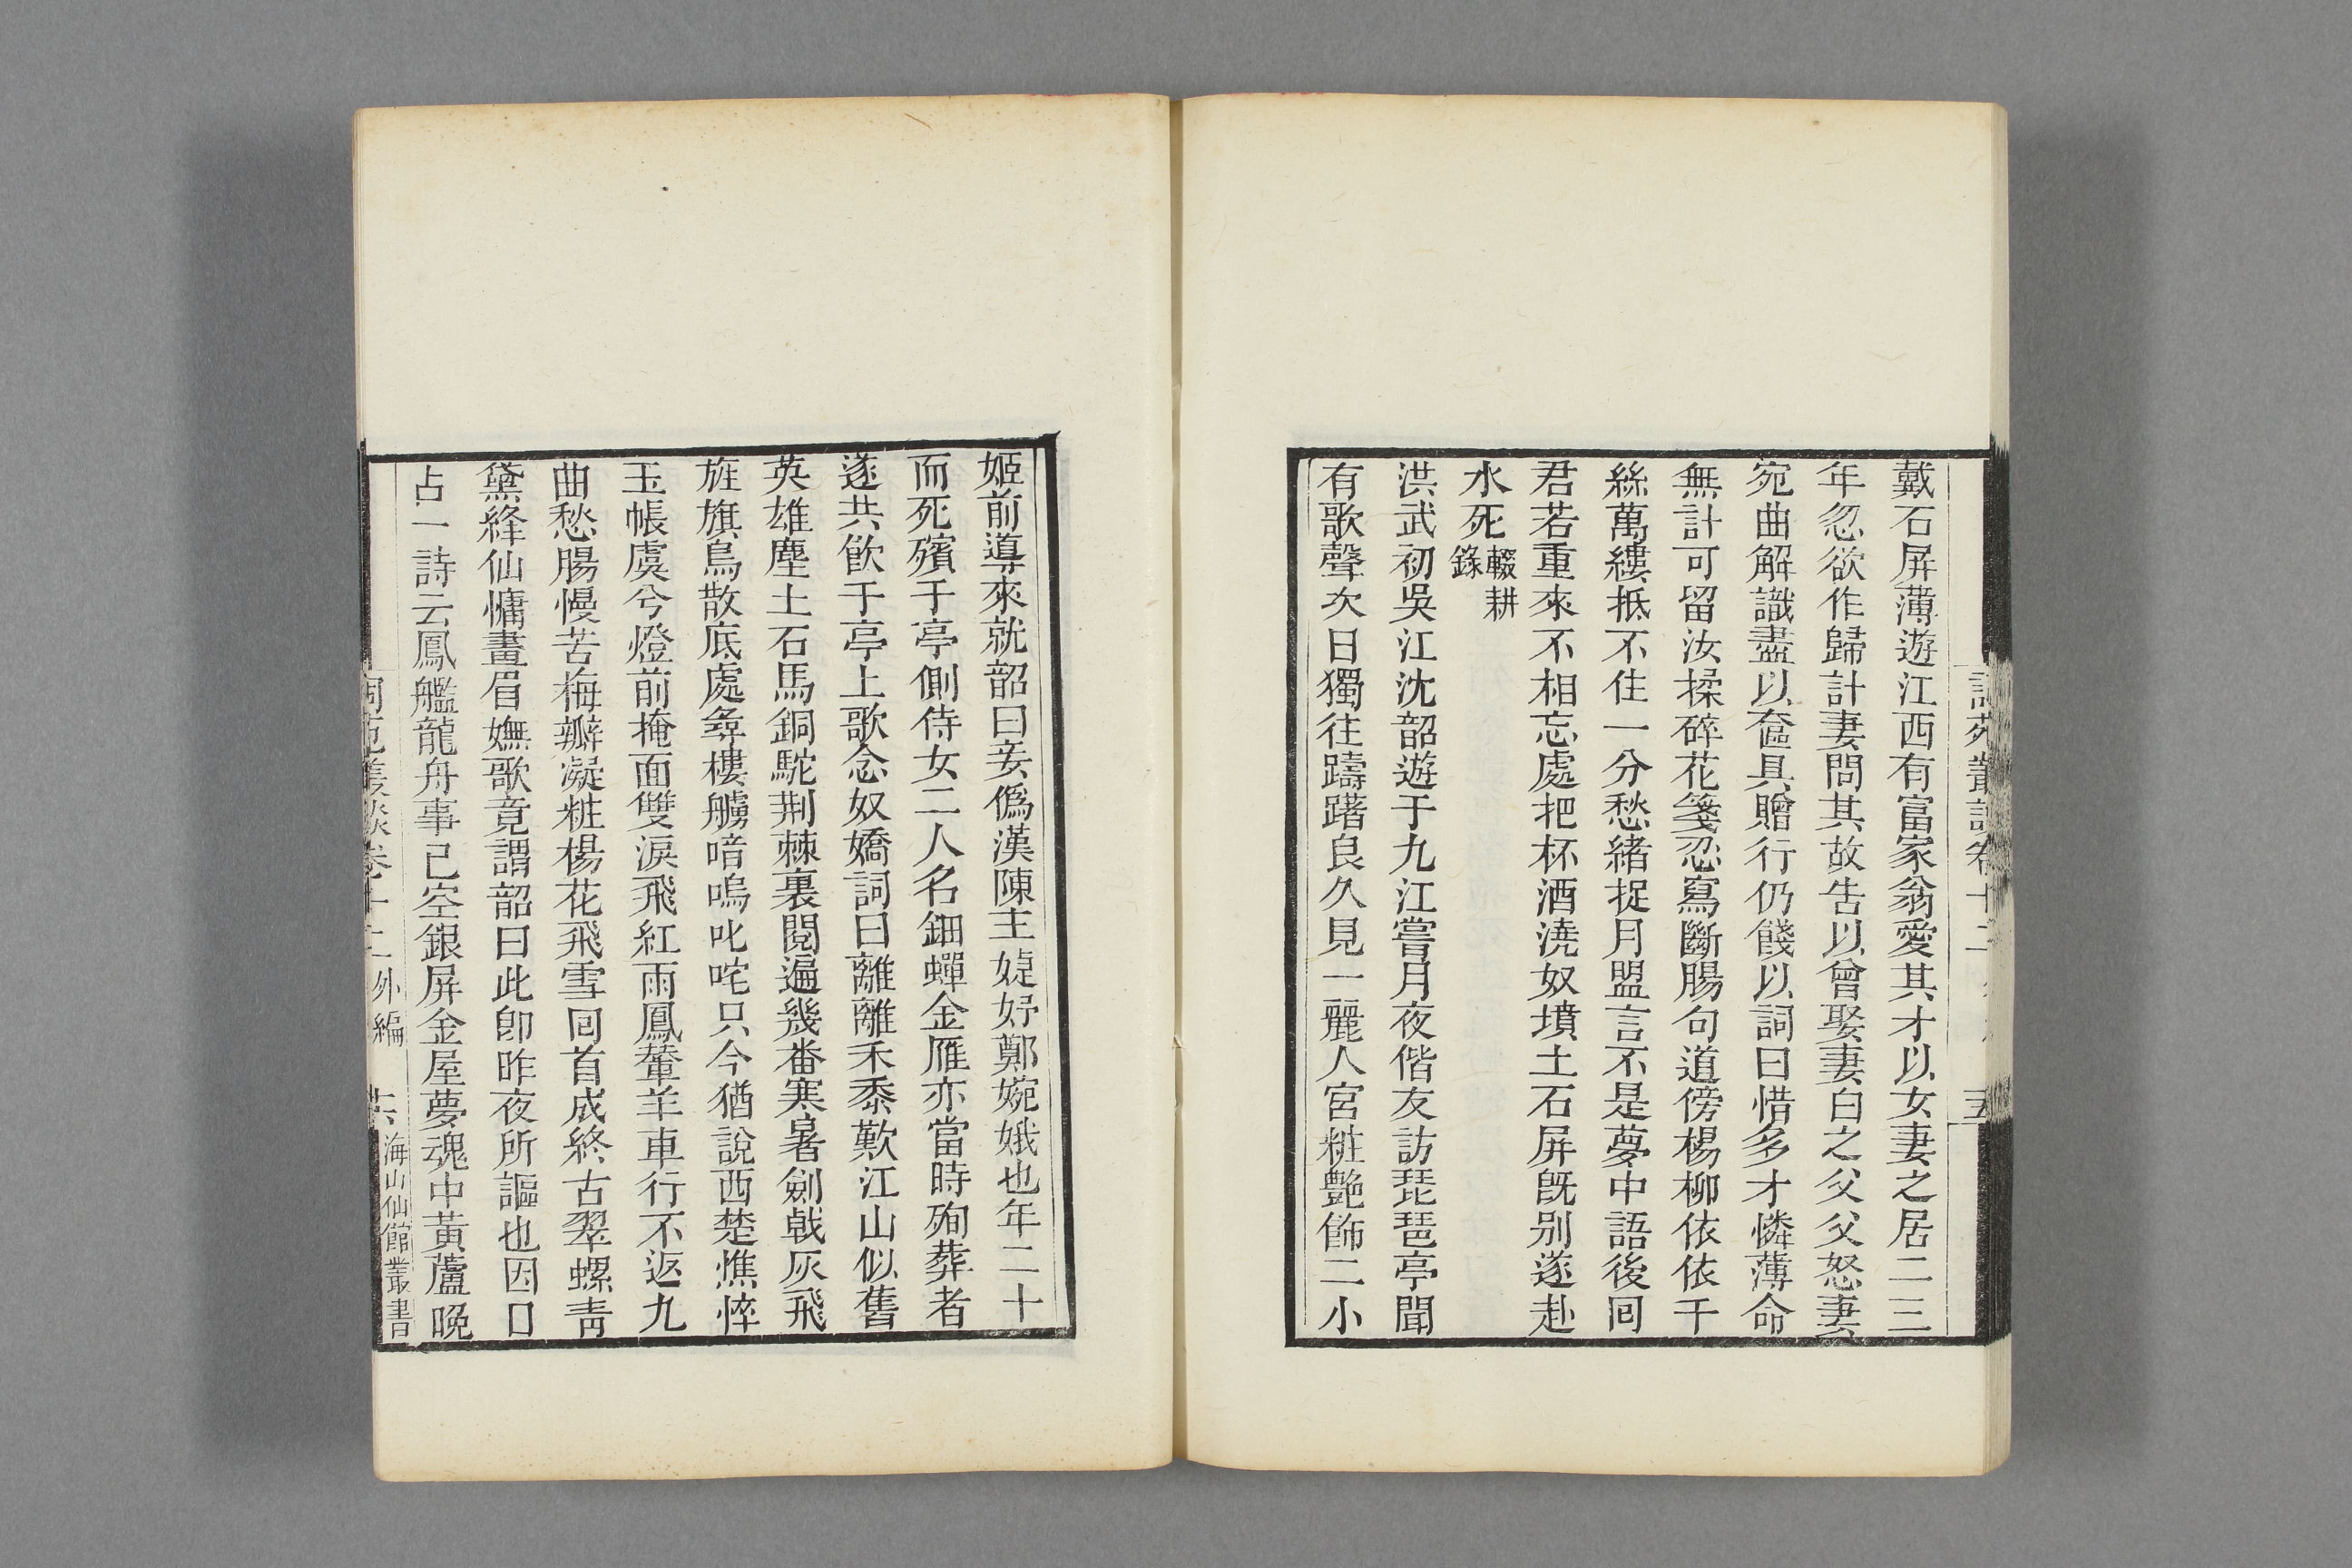 戴石屏薄遊江西有富家翁愛其才以女妻之居二三
年忽欲作歸計妻問其故告以曾娶妻白之父父怒妻
宛曲解識盡以奩具贈行仍餞以詞曰惜多才憐薄命
無計可留汝揉碎花箋忍寫斷腸句道傍楊柳依依千
絲萬縷抵不住一分愁緒捉月盟言不是夢中語後囘
君若重來不相忘處把杯酒澆奴墳土石屏旣别遂赴
水死輟耕
錄
洪武初吳江沈韶遊于九江嘗月夜偕友訪琵琶亭聞
有歌聲次日獨往躊躇良久見一麗人宮粧艷飾二小
姬前導來就韶曰妾僞漢陳主婕妤鄭婉娥也年二十
而死殯于亭側侍女二人名鈿蟬金雁亦當時殉葬者
遂共飮于亭上歌念奴嬌詞曰離離禾黍歎江山似舊
英雄塵土石馬銅駝荆棘裏閱遍幾番寒暑劍戟灰飛
旌旗鳥散底處尋樓艣喑嗚叱咤只今猶說西楚憔悴
玉帳虞兮燈前掩面雙淚飛紅雨鳳輦羊車行不返九
曲愁腸慢苦梅瓣凝粧楊花飛雪囘首成終古翠螺靑
黛絳仙慵畫眉嫵歌竟謂韶曰此卽昨夜所謳也因口
占一詩云鳳艦龍舟事已空銀屏金屋夢魂中黃蘆晚
詞苑叢談卷十二外編 海山仙館叢書